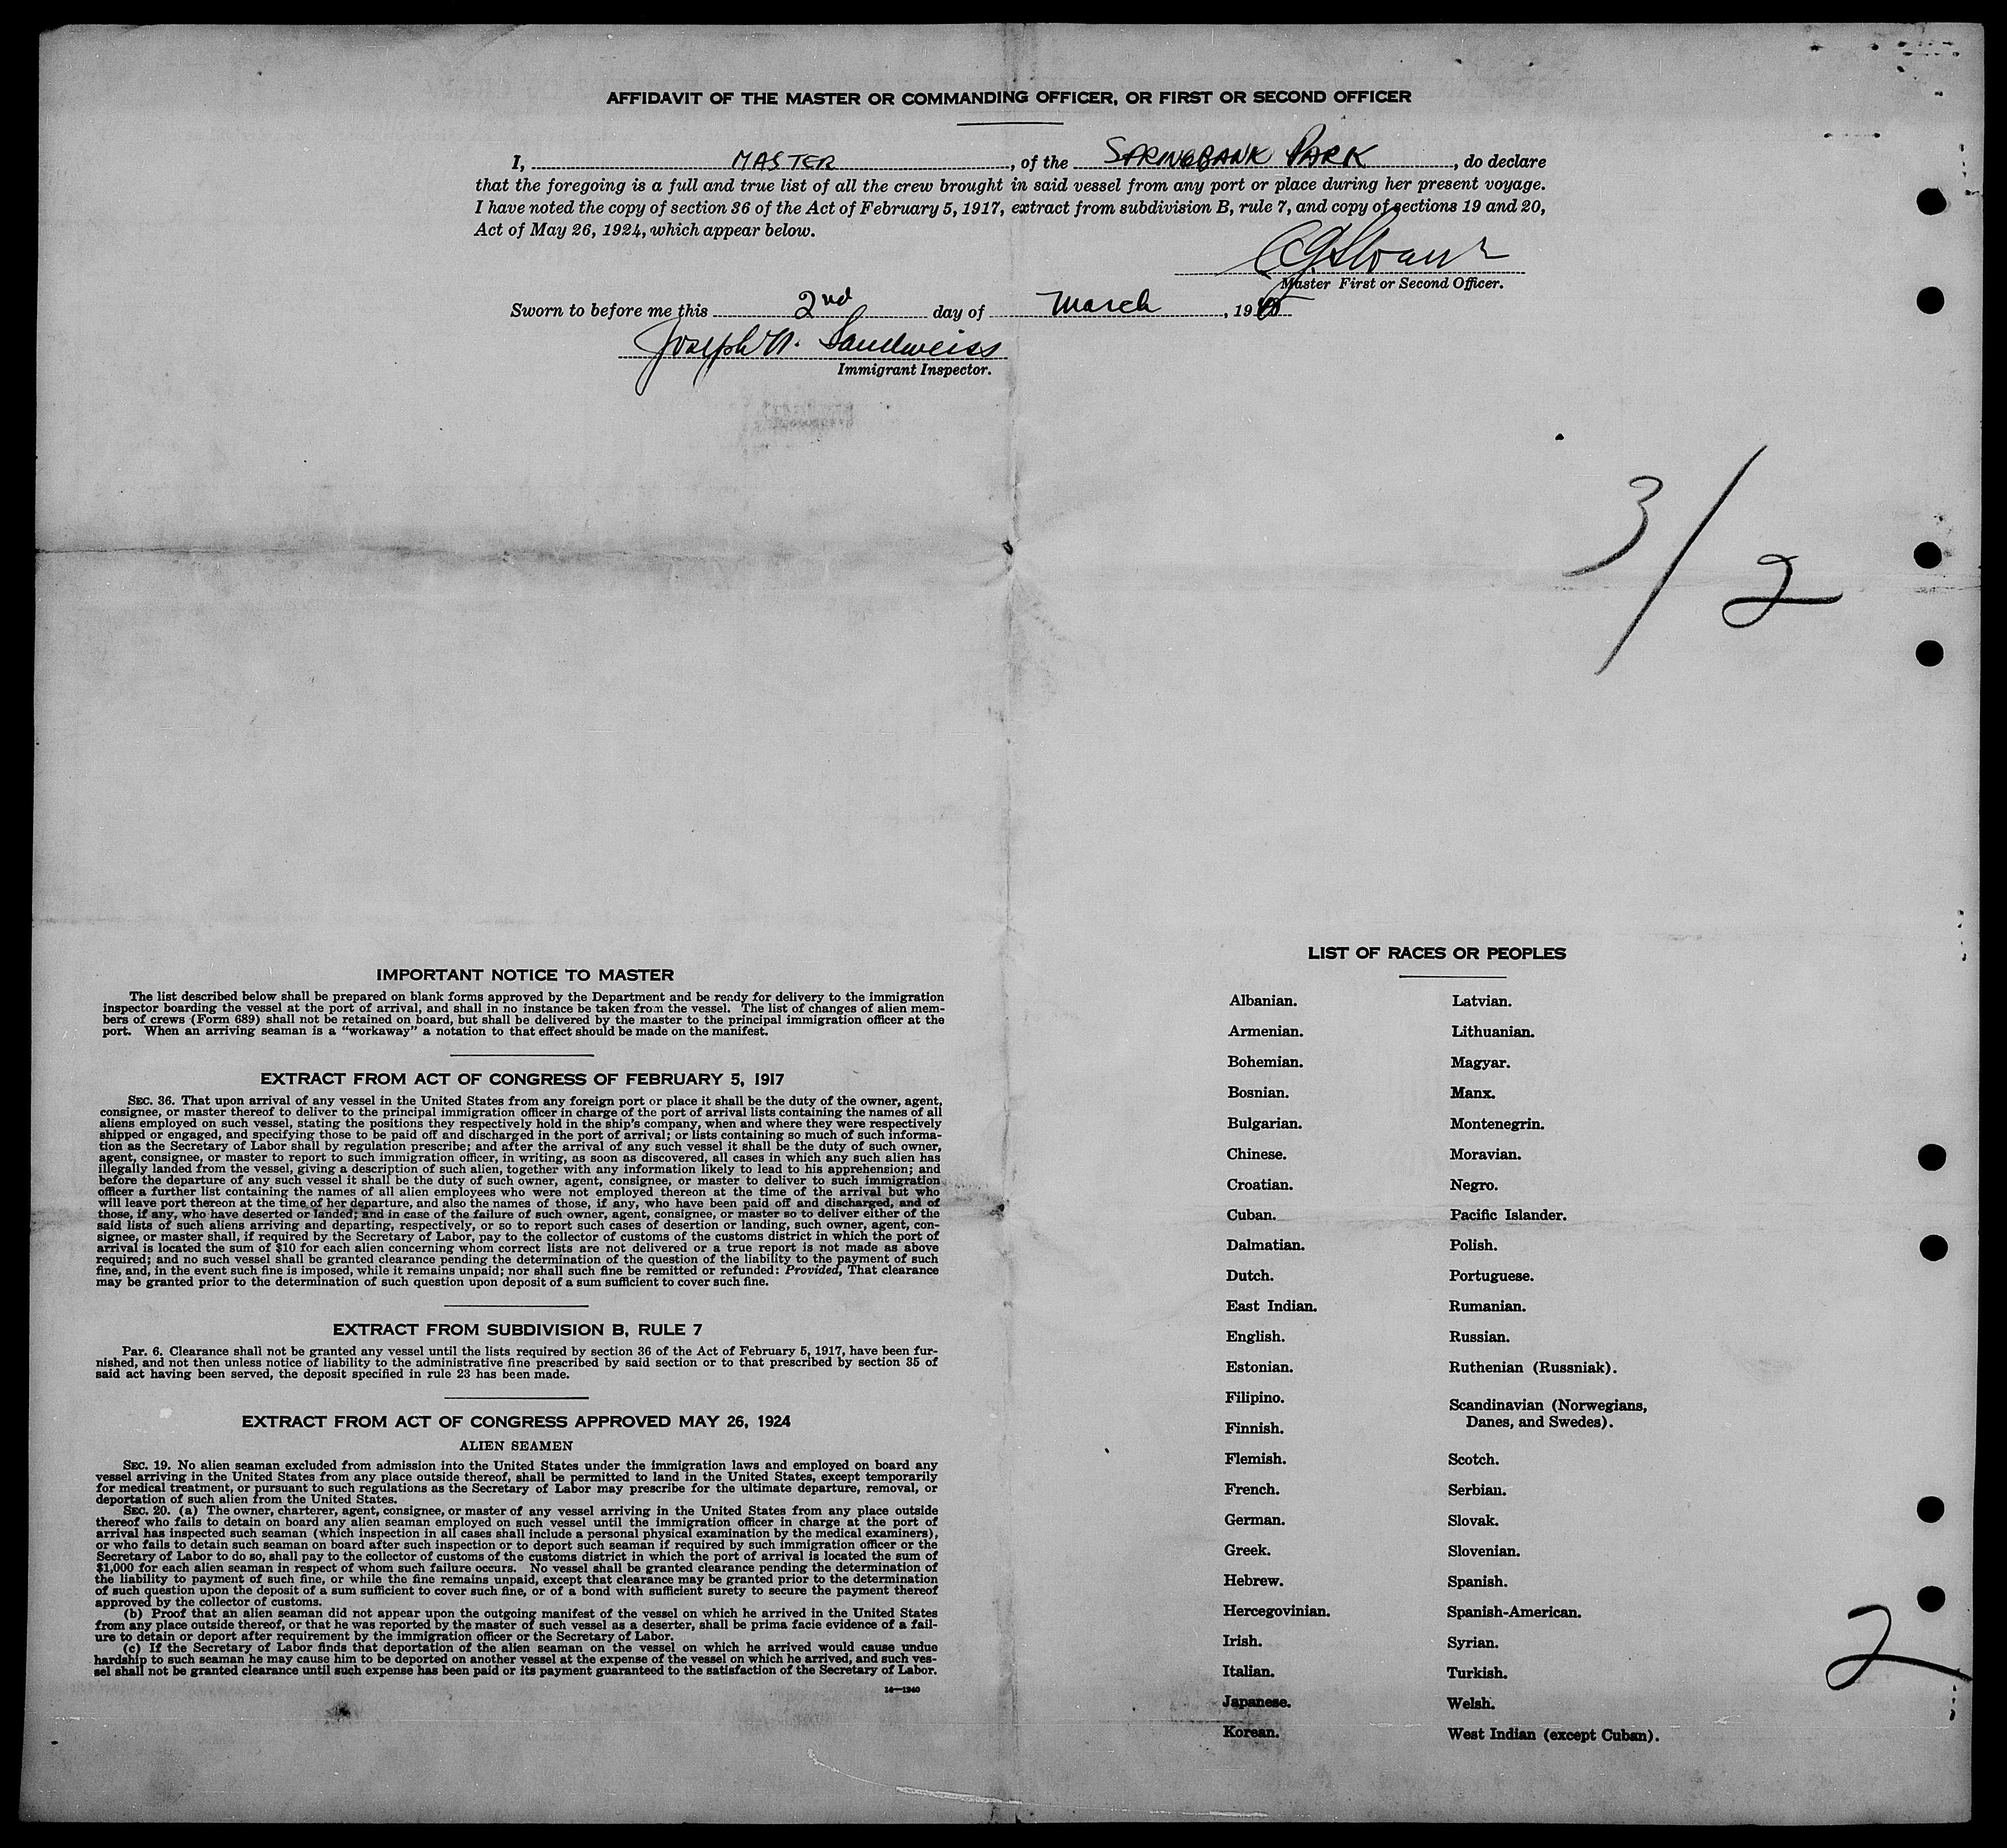 AFFIDAVIT OF THE MASTER OR COMMANDING OFFICER, OR FIRST OR SECOND OFFICER
I, MASTER, of the SPRINGBANK PARK, do declare
that the foregoing is a full and true list of all the crew brought in said vessel from any port or place during her present voyage.
I have noted the copy of section 36 of the Act of February 5, 1917, extract from subdivision B, rule 7, and copy of sections 19 and 20,
Act of May 26, 1924, which appear below.
Master First or Second Officer.
Sworn to before me this 2nd day of March, 19
Joseph N. Sandweiss
Immigrant Inspector.
3/2
IMPORTANT NOTICE TO MASTER
The list described below shall be prepared on blank forms approved by the Department and be ready for delivery to the immigration
inspector boarding the vessel at the port of arrival, and shall in no instance be taken from the vessel. The list of changes of alien mem-
bers of crews (Form 689) shall not be retained on board, but shall be delivered by the master to the principal immigration officer at the
port. When an arriving seaman is a "workaway" a notation to that effect should be made on the manifest.
EXTRACT FROM ACT OF CONGRESS OF FEBRUARY 5, 1917
SEC. 36. That upon arrival of any vessel in the United States from any foreign port or place it shall be the duty of the owner, agent,
consignee, or master thereof to deliver to the principal immigration officer in charge of the port of arrival lists containing the names of all
aliens employed on such vessel, stating the positions they respectively hold in the ship's company, when and where they were respectively
shipped or engaged, and specifying those to be paid off and discharged in the port of arrival; or lists containing so much of such informa-
tion as the Secretary of Labor shall by regulation prescribe; and after the arrival of any such vessel it shall be the duty of such owner,
agent, consignee, or master to report to such immigration officer, in writing, as soon as discovered, all cases in which any such alien has
illegally landed from the vessel, giving a description of such alien, together with any information likely to lead to his apprehension; and
before the departure of any such vessel it shall be the duty of such owner, agent, consignee, or master to deliver to such immigration
officer a further list containing the names of all alien employees who were not employed thereon at the time of the arrival but who
will leave port thereon at the time of her departure, and also the names of those, if any, who have been paid off and discharged, and of
those, if any, who have deserted or landed; and in case of the failure of such owner, agent, consignee, or master so to deliver either of the
said lists of such aliens arriving and departing, respectively, or so to report such cases of desertion or landing, such owner, agent, con-
signee, or master shall, if required by the Secretary of Labor, pay to the collector of customs of the customs district in which the port of
arrival is located the sum of $10 for each alien concerning whom correct lists are not delivered or a true report is not made as above
required; and no such vessel shall be granted clearance pending the determination of the question of the liability to the payment of such
fine, and, in the event such fine is imposed, while it remains unpaid; nor shall such fine be remitted or refunded: Provided, That clearance
may be granted prior to the determination of such question upon deposit of a sum sufficient to cover such fine.
EXTRACT FROM SUBDIVISION B, RULE 7
Par. 6. Clearance shall not be granted any vessel until the lists required by section 36 of the Act of February 5, 1917, have been fur-
nished, and not then unless notice of liability to the administrative fine prescribed by said section or to that prescribed by section 35 of
said act having been served, the deposit specified in rule 23 has been made.
EXTRACT FROM ACT OF CONGRESS APPROVED MAY 26, 1924
ALIEN SEAMEN
SEC. 19. No alien seaman excluded from admission into the United States under the immigration laws and employed on board any
vessel arriving in the United States from any place outside thereof, shall be permitted to land in the United States, except temporarily
for medical treatment, or pursuant to such regulations as the Secretary of Labor may prescribe for the ultimate departure, removal, or
deportation of such alien from the United States.
SEC. 20. (a) The owner, charterer, agent, consignee, or master of any vessel arriving in the United States from any place outside
thereof who fails to detain on board any alien seaman employed on such vessel until the immigration officer in charge at the port of
arrival has inspected such seaman (which inspection in all cases shall include a personal physical examination by the medical examiners),
or who fails to detain such seaman on board after such inspection or to deport such seaman if required by such immigration officer or the
Secretary of Labor to do so, shall pay to the collector of customs of the customs district in which the port of arrival is located the sum of
$1,000 for each alien seaman in respect of whom such failure occurs. No vessel shall be granted clearance pending the determination of
the liability to payment of such fine, or while the fine remains unpaid, except that clearance may be granted prior to the determination
of such question upon the deposit of a sum sufficient to cover such fine, or of a bond with sufficient surety to secure the payment thereof
approved by the collector of customs.
(b) Proof that an alien seaman did not appear upon the outgoing manifest of the vessel on which he arrived in the United States
from any place outside thereof, or that he was reported by the master of such vessel as a deserter, shall be prima facie evidence of a fail-
ure to detain or deport after requirement by the immigration officer or the Secretary of Labor.
(c) If the Secretary of Labor finds that deportation of the alien seaman on the vessel on which he arrived would cause undue
hardship to such seaman he may cause him to be deported on another vessel at the expense of the vessel on which he arrived, and such ves-
sel shall not be granted clearance until such expense has been paid or its payment guaranteed to the satisfaction of the Secretary of Labor.
14—1240
LIST OF RACES OR PEOPLES
Albanian.
Armenian.
Bohemian.
Bosnian.
Bulgarian.
Chinese.
Croatian.
Cuban.
Dalmatian.
Dutch.
East Indian.
English.
Estonian.
Filipino.
Finnish.
Flemish.
French.
German.
Greek.
Hebrew.
Hercegovinian.
Irish.
Italian.
Japanese.
Korean.
Latvian.
Lithuanian.
Magyar.
Manx.
Montenegrin.
Moravian.
Negro.
Pacific Islander.
Polish.
Portuguese.
Rumanian.
Russian.
Ruthenian (Russniak).
Scandinavian (Norwegians,
Danes, and Swedes).
Scotch.
Serbian.
Slovak.
Slovenian.
Spanish.
Spanish-American.
Syrian.
Turkish.
Welsh.
West Indian (except Cuban).
2